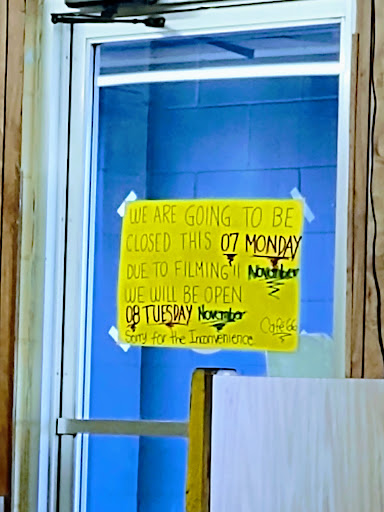 WE ARE GOING TO BE
CLOSED THIS 07 MONDAY
DUE TO FILMING!! November
WE WILL BE OPEN
08 TUESDAY November
Sorry for the Inconvenience
Café 66